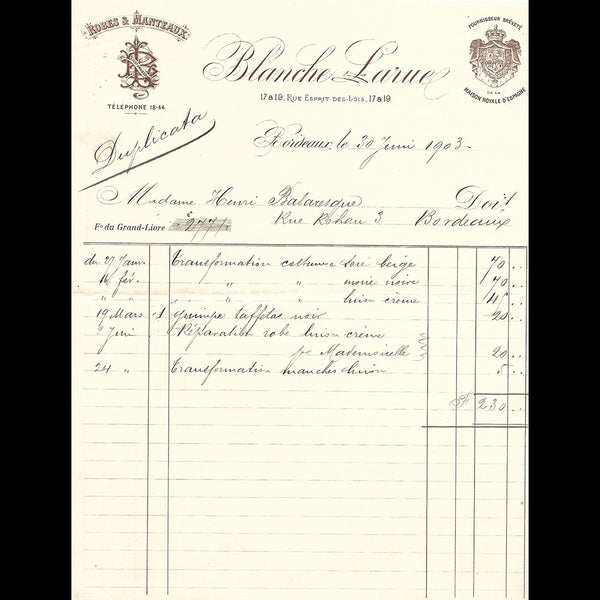 ROBES & MANTEAUX
TÉLÉPHONE 18-44
Blanche Larue
17 & 19, RUE ESPRIT-DES-LOIS, 17 & 19
FOURNISSEUR BRÉVETÉ
DE LA
MAISON ROYALE D'ESPAGNE
Duplicata
Bordeaux, le 30 Juin 1903
Madame Henri Balaresque Doit
Rue Rohan 3 Bordeaux
Fo du Grand-Livre 277
du 27 Janv. Transformation costume soie beige 70
14 fév. " " moire noire 70
" " " " linon crème 45
19 Mars 1 guimpe taffetas noir 20
2 Juin Réparation robe linon crème
pr Mademoiselle 20
24 " Transformation manches linon 5
F 230